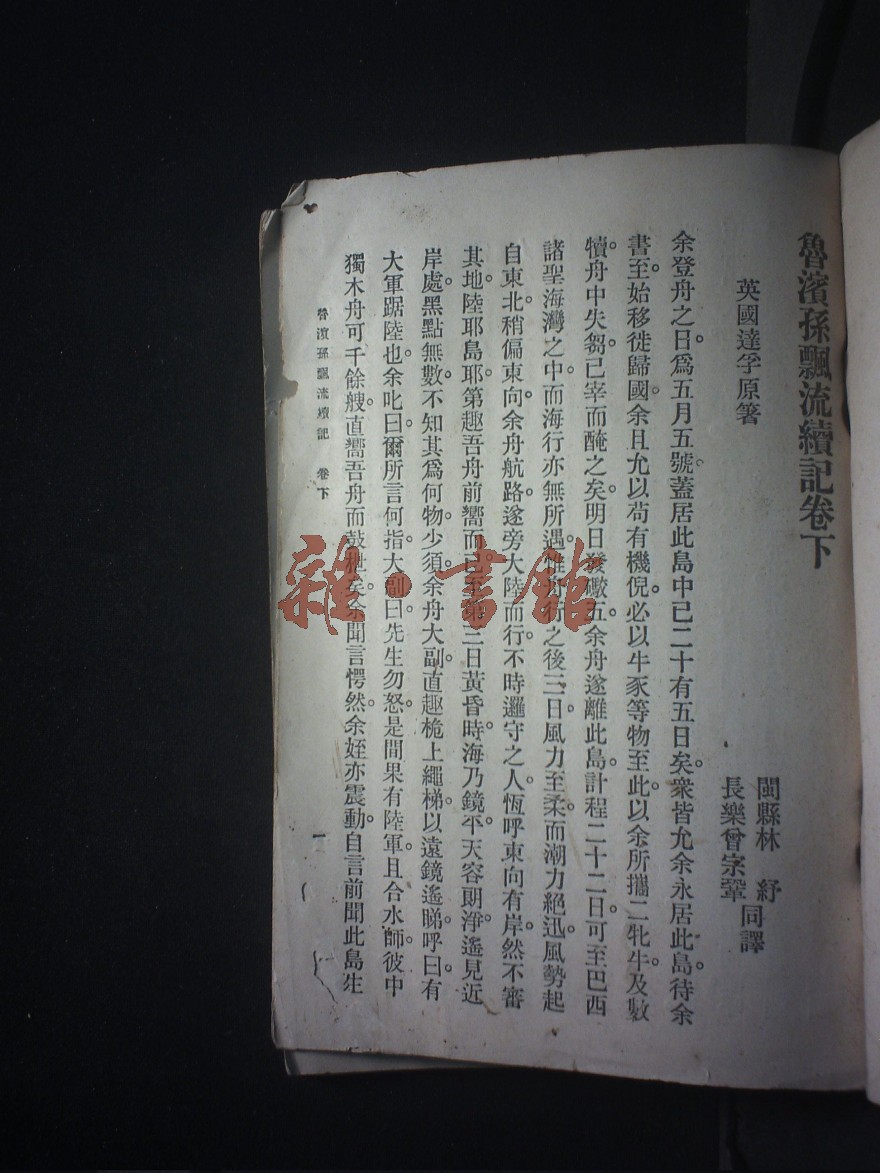 魯濱孫飄流續記卷下
英國達孚原箸
閩縣林紓
長樂曾宗鞏
同譯
余登舟之日爲五月五號。蓋居此島中已二十有五日矣。衆皆允余永居此島。待余
書至。始移徙歸國。余且允以苟有機倪。必以牛豕等物至此。以余所攜二牝牛及數
犢。舟中失芻。已宰而醃之矣。明日發礮五。余舟遂離此島。計程二十二日。可至巴西
諸聖海灣之中。而海行亦無所遇。惟行之後三日。風力至柔。而潮力絕迅。風勢起
自東北。稍偏東向。余舟航路。遂旁大陸而行。不時邏守之人。恆呼東向有岸。然不審
其地。陸耶島耶。第趣吾舟前嚮而已。至第三日黃昏時。海乃鏡平。天容朗淨。遙見近
岸處。黑點無數。不知其爲何物。少須余舟大副。直趣桅上繩梯。以遠鏡遙睇。呼曰。有
大軍踞陸也。余叱曰。爾所言何指。大副曰。先生勿怒。是間果有陸軍。且合水師。彼中
獨木舟可千餘艘。直嚮吾舟而鼓枻矣。余聞言愕然。余姪亦震動。自言前聞此島生
魯濱孫飄流續記 卷下
一
雜·書館